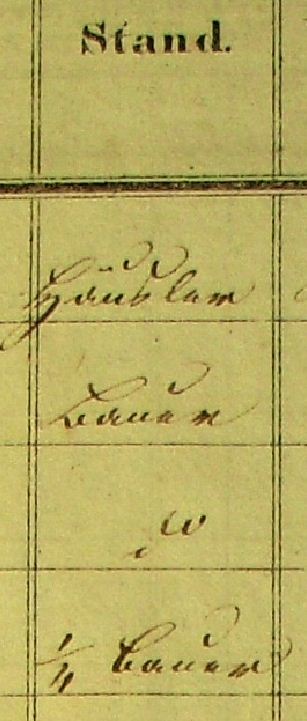 Stand.
Häusler
Bauer
do
1/4 Bauer